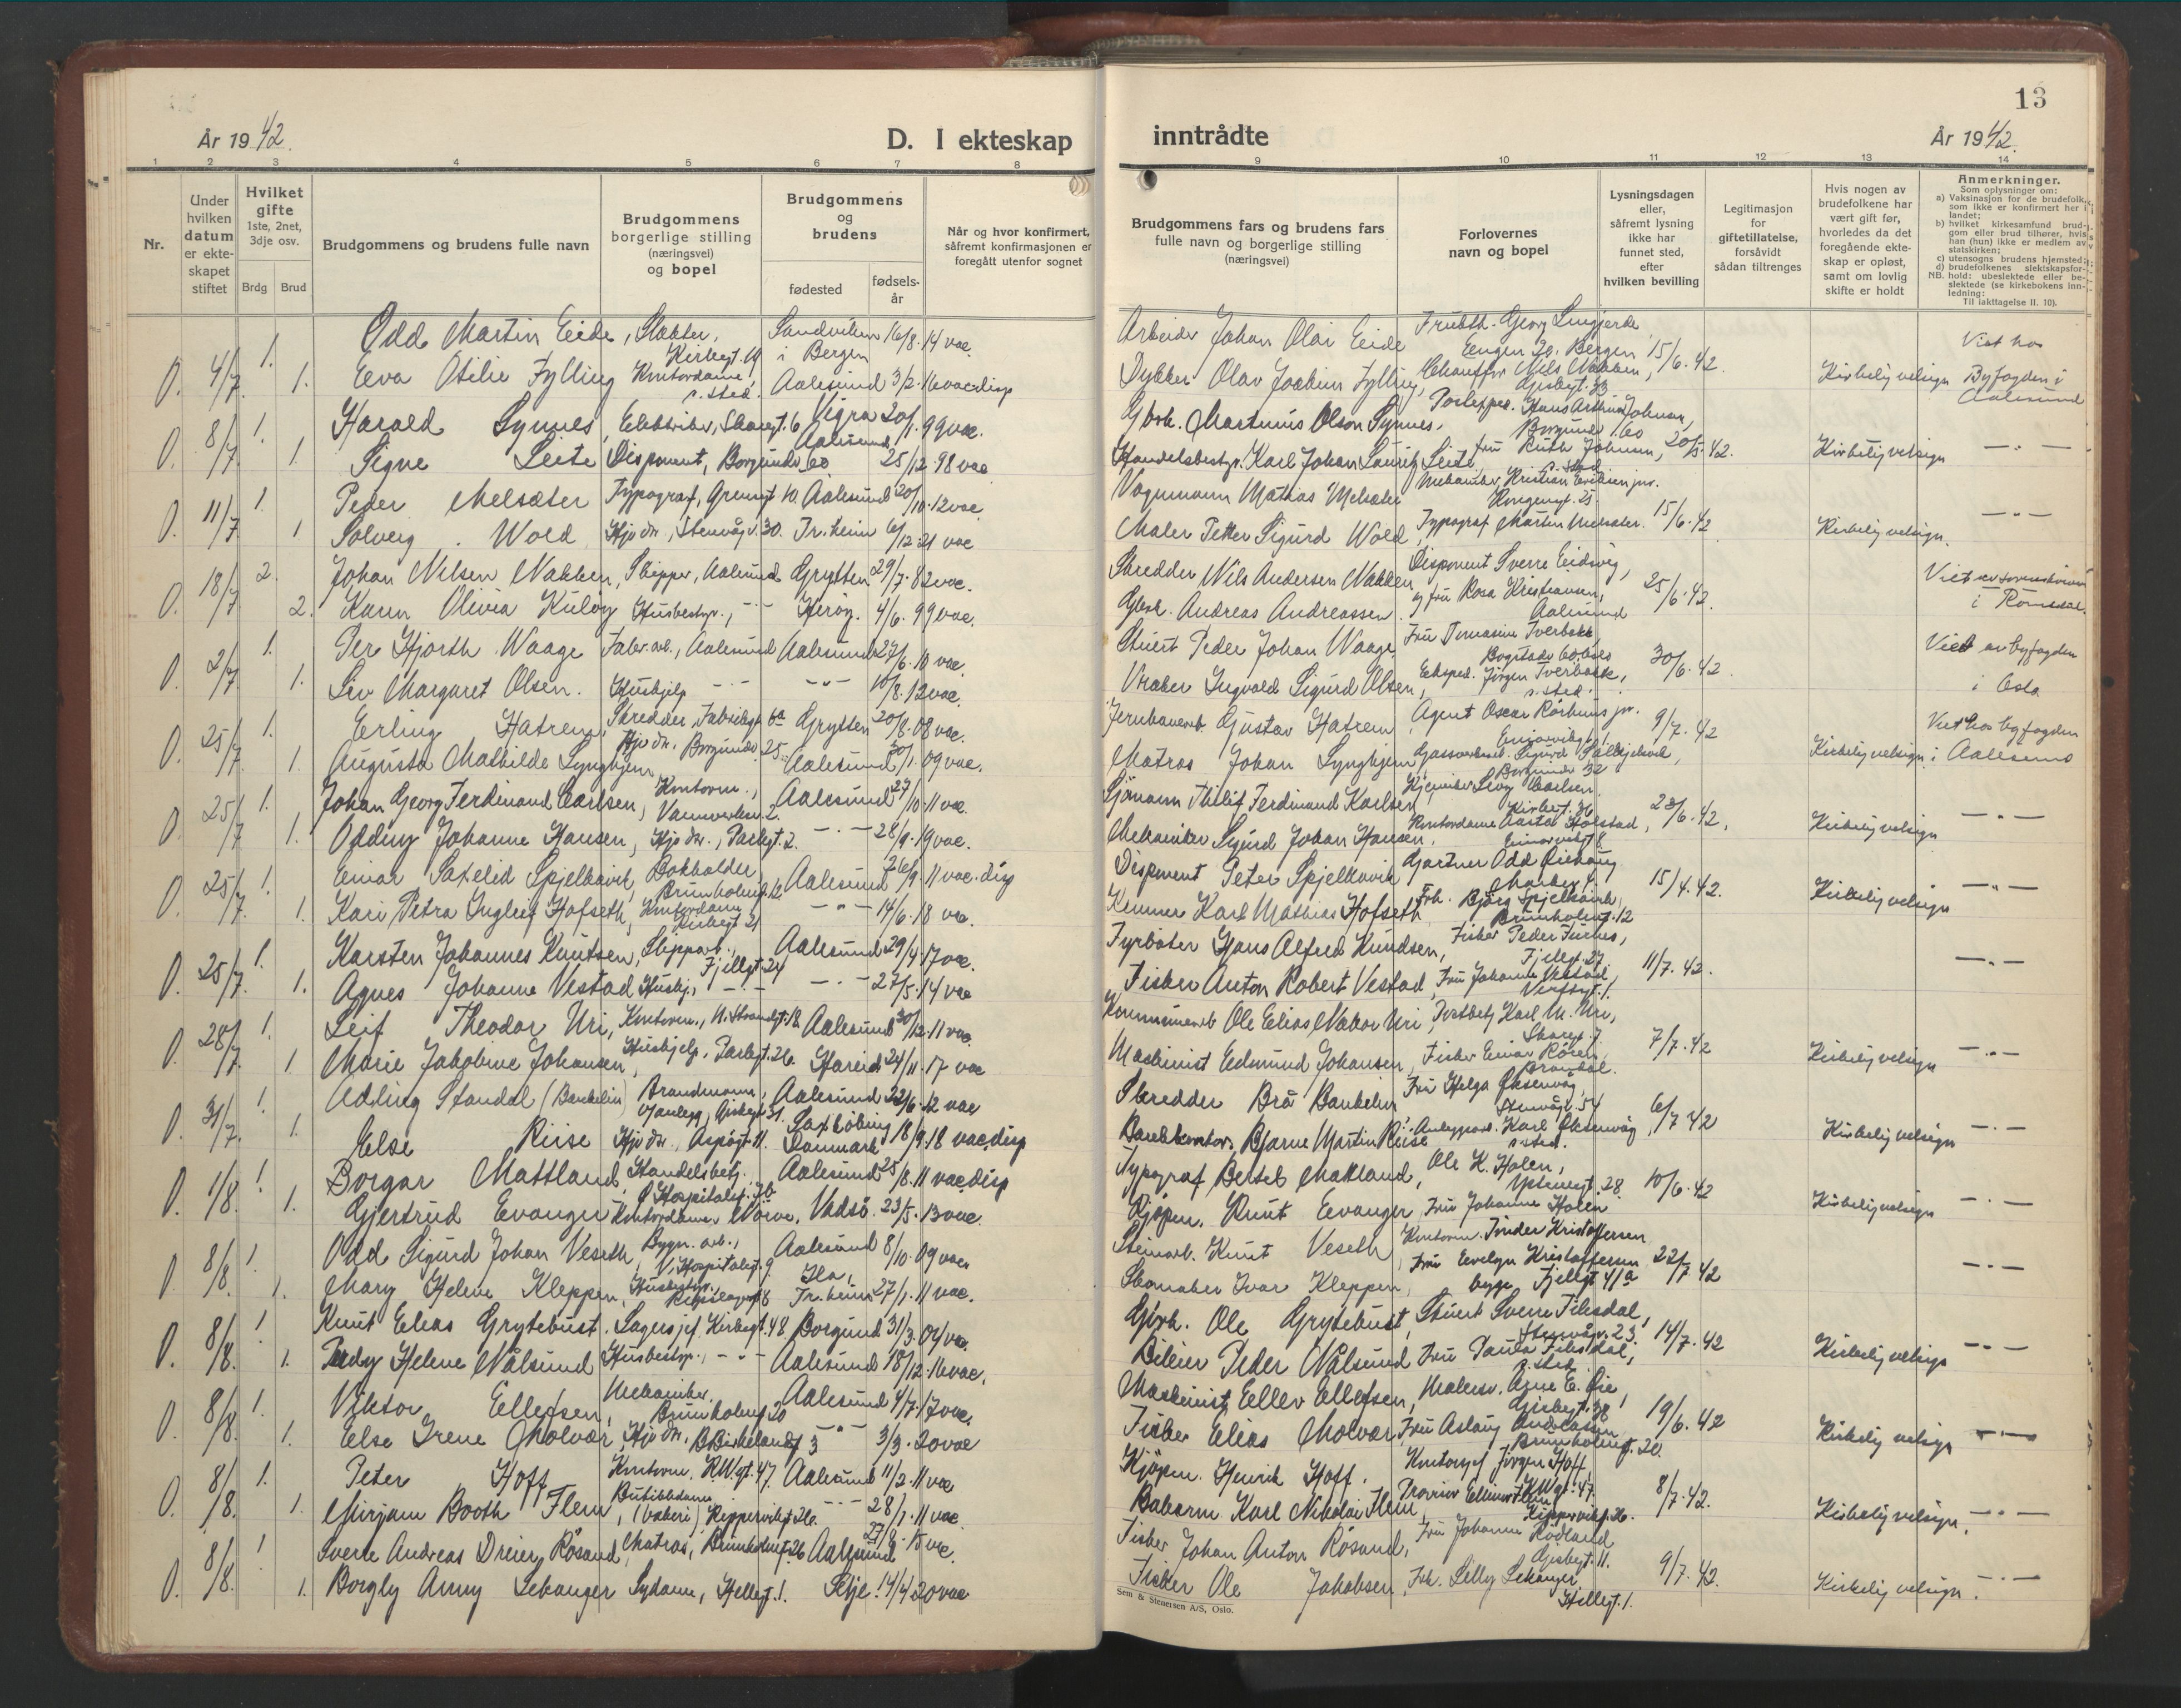 13
År 1942.
D. I ekteskap
inntrådte
År 1942.
1 2 3 4 5 6 7 8 9 10 11 12 13 14
Nr.
Under hvilken datum er ekteskapet stiftet
Hvilket gifte 1ste, 2net, 3dje osv.
Brdg Brud
Brudgommens og brudens fulle navn
Brudgommens borgerlige stilling (næringsvei) og bopel
Brudgommens og brudens
fødested
fødselsår
Når og hvor konfirmert, såfremt konfirmasjonen er foregått utenfor sognet
Brudgommens fars og brudens fars fulle navn og borgerlige stilling (næringsvei)
Forlovernes navn og bopel
Lysningsdagen eller, såfremt lysning ikke har funnet sted, efter hvilken bevilling
Legitimasjon for giftetillatelse, forsåvidt sådan tiltrenges
Hvis nogen av brudefolkene har vært gift før, hvorledes da det foregående ekteskap er opløst, samt om lovlig skifte er holdt
Anmerkninger.
Som oplysninger om:
a) Vaksinasjon for de brudefolk, som ikke er konfirmert her i landet;
b) hvilket kirkesamfund brudgom eller brud tilhører, hvis han (hun) ikke er medlem av statskirken;
c) utensogns brudens hjemsted;
d) brudefolkenes slektskapsforhold: ubeslektede eller beslektede (se kirkebokens innledning:
NB.
Til iakttagelse II. 10).
O. 4/7 1. Odd Martin Eide, Slakter, Kirkegt. 19 Sandviken i Bergen 16/8. 14 vac. Arbeider Johan Olai Eide
1. Eva Otilie Fylling Kontordame, s. sted. Aalesund 3/2. 16 vac. disp Dykker Olav Joakim Fylling, Chauffør Nils Nakken, 15/6. 42. Kirkelig velsign Viet hos Byfogden i Aalesund
O. 8/7 1. Harald Synnes, Elektriker, Skaregt. 6 Vigra 20/1. 99 vac. Gbrk. Martinus Olson Synnes.
1. Signe Leite Disponent, Borgundv. 60 Aalesund 25/12. 98 vac Handelsbestyr. Karl Johan Lauritz Leite, fru Ruth Johnsen, s. sted 20/5. 42. Kirkelig velsign — " —
O. 11/7 1. Peder Melsæter Typograf, Grensegt. 10. Aalesund 20/10. 12 vac Vognmann Mathias Melsæter Mekaniker, Kristian Eriksen jnr. Kongensgt. 25.
1 Solveig Wold Hjv. dr., Stenvågv. 30. Tr.heim 6/12. 21 vac Maler Petter Sigurd Wold, Typograf Martin Melsæter. 15/6. 42 Kirkelig velsign. — " —
O. 18/7 2. Johan Nilsen Nakken, Skipper, Aalesund Grytten 29/7. 82 vac. Skredder Nils Andersen Nakken Disponent Sverre Eidsvig,
2. Karin Olivia Kuløy Husbestyr., — " — Herøy. 4/6. 99 vac. Gbrk. Andreas Andreassen og fru Rosa Kristiansen, Aalesund 25/6. 42. Viet av sorenskriveren i Romsdal.
O. 2/7 1. Per Hjorth Waage Fabr. arb., Aalesund Aalesund 27/6. 10 vac. Stuert Peder Johan Waage Fru Tomasine Tverbakk,
1. Siv Margaret Olsen. Hushjelp — " — — " — 10/8. 12 vac. Vraker Ingvald Sigurd Olsen, Eksped. Jørgen Tverbakk, s. sted. 30/6. 42 Viet av byfogden i Oslo
O. 25/7 1. Erling Hatrem, Skredder, Fabrikkgt. 6a Grytten 20/8. 08 vac. Jernbanearb. Gustav Hatrem Agent Oscar Rørhuus jr.
1. Augusta Mathilde Lyngheim Hjv. dr. Borgundv. 25 Aalesund 20/1. 09 vac. Matros Johan Lyngheim Borgundv 32 9/7. 42 Kirkelig velsign Viet hos byfogden i Aalesund
O. 25/7 1. Johan Georg Ferdinand Carlsen, Kontorm., Vannverksv. 2. Aalesund 27/10. 11 vac. Sjømann Thilif Ferdinand Karlsen Carlsen. Kirkegt. 36
1. Oddny Johanne Hansen, Hjv. dr., Parkgt. 2. — " — 28/9. 19 vac. Mekaniker Sigurd Johan Hansen, Kontordame Aasta Holstad, 23/6. 42, Kirkelig velsign — " —
O. 25/7. 1. Einar Saxelid Spjelkavik, Bokholder, Brunholmgt. 12 Aalesund 26/9. 11 vac. disp Disponent Peter Spjelkavik Gartner Odd Giskaug
1. Kari Petra Ingleif Hofseth, Kontordame Kirkegt 21 — " — 14/6. 18 vac. Kemner Karl Mathias Hofseth Frk. Bjørg Spjelkavik, Brunholmgt. 12 15/4. 42. Kirkelig velsign — " —
O. 25/7. 1. Karsten Johannes Knutsen, Slipparb., Fjellgt. 24 Aalesund 29/4. 17 vac. Fyrbøter Hans Alfred Kundsen, Fisker Peder Furnes, Fjellgt. 27
1. Agnes Johanne Vestad Hushj., — " — — " — 27/5. 14 vac Fisker Anton Robert Vestad, Fru Johanne Vestad, Verftsgt. 1. 11/7. 42. — " —
O. 28/7 1. Leif Theodor Uri, Kontorm., N. Strandgt. 18. Aalesund 30/12. 11 vac. Kommunearb Ole Elias Nekor Uri, Postbetj Karl M. Uri, Skaregt. 7.
1 Marie Jakobine Johansen, Hushjelp, Parkgt. 26. Hareid 24/11. 17 vac Maskinist Edmund Johansen, Fisker Einar Røren, 7/7. 42 Kirkelig velsign — " —
O. 31/7. 1. Adling Standal (Bankelin) Brandmann, Aalesund 22/6. 12 vac Skredder Brå Bankelin Fru Helga Oksenvåg, Stenvågv. 54
1. Else Riise Hjv. dr., Aspøgt. 11. Saxkøbing Danmark 18/9. 18 vac. disp Bankkontor. Bjarne Martin Riise Anleggsarb. Karl Oksenvåg, s. sted. 6/7. 42 Kirkelig velsign — " —
O. 1/8. 1. Borgar Mattland, Handelsbetj. Ø Hospitalsgt. 7b Aalesund 25/8. 11 vac. disp Typograf Bertel Mattland, Ole K. Holen, 28.
1. Gjertrud Evanger Kontordame Nørve. Vadsø. 23/5. 13 vac. Kjøpm. Knut Evanger Fru Johanne Holen 10/6. 42 Kirkelig velsign — " —
O 8/8. 1. Odd Sigurd Johan Veseth, Bygn. arb., V. Hospitalsgt. 9 Aalesund 8/10. 09 vac. Stenarb. Knut Veseth Kontorm. Tinder Kristoffersen
1. Mary Helene Kleppen, Husbestyr., Ila, Tr.heim 27/1. 11 vac. Skomaker Ivar Kleppen, fru Evelyn Kristoffersen begge Fjellgt 41a 22/7 42 — " —
O. 8/8. 1 Knut Elias Grytebust. Lagersjef, Kirkegt. 48. Borgund 31/3. 04 vac. Gbrk. Ole Grytebust, Stuert Sverre Filisdal, Stenvågv. 23.
1. Rudy Helene Nålsund Husbestyr., — " — Aalesund 18/12. 16 vac. Bileier Peder Nålsund Fru Paula Filisdal, s. sted 14/7. 42 Kirkelig velsign — " —
O. 8/8. 1. Viktor Ellefsen, Mekaniker, Brunholmgt 20 Aalesund 4/7. 17 vac. Maskinist Eller Ellefsen, Malersv. Arne E. Øie, Giskegt. 38
1. Else Irene Molvær, Hjv. dr., B. Birkelandsgt 3 — " — 3/3. 20 vac Fisker Elias Molvær, Fru Aslaug Andreassen Brunholmgt. 20. 19/6. 42 Kirkelig velsign — " —
O. 8/8. 1. Peter Hoff Kontorm. R.W.gt. 47. Aalesund 11/2. 11 vac Kjøpm. Henrik Hoff. Kontorsjef Jørgen Hoff R.W.gt. 47.
1. Mirjam Booth Flem, Butikkdame, (bakeri) Kipperviksgt 26. — " — 28/1. 11 vac. Bakerm Karl Nikolai Flem, Kipperviksgt. 26. 8/7. 42. Kirkelig velsign. — " —
O. 8/8. 1 Sverre Andreas Dreier Røsand, Matros, Brunholmgt. 26 Aalesund 27/8. 15 vac. Fisker Johan Anton Røsand, Fru Johanne Rødland Giskegt. 11.
1. Borgly Anny Lekanger Sydame, Hellegt. 1. Selje! 4/4 20 vac Fisker Ole Jakobsen, Frk. Lilly Lekanger Hellegt. 1. 9/7. 42. Kirkelig velsign. — " —
Sem & Stenersen A/S, Oslo.